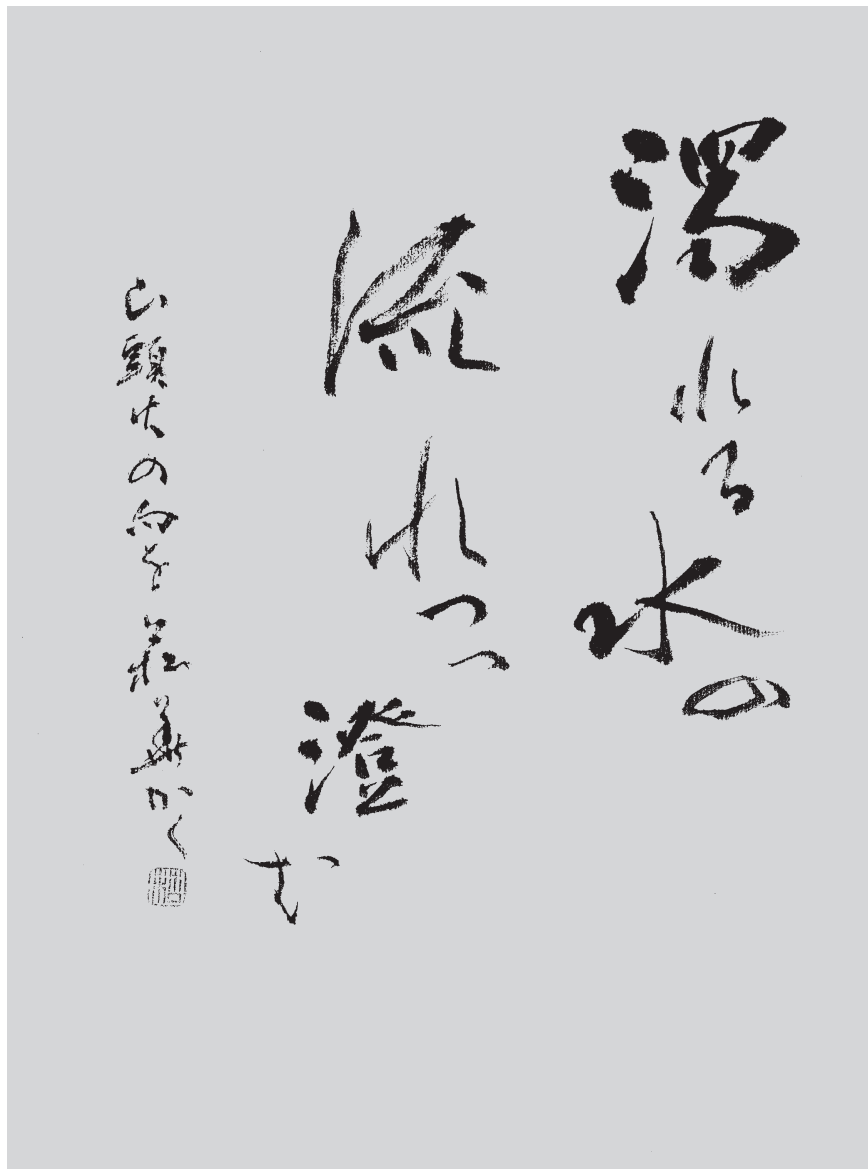 濁れる水の
流れつつ澄む
山頭火の句を 華かく